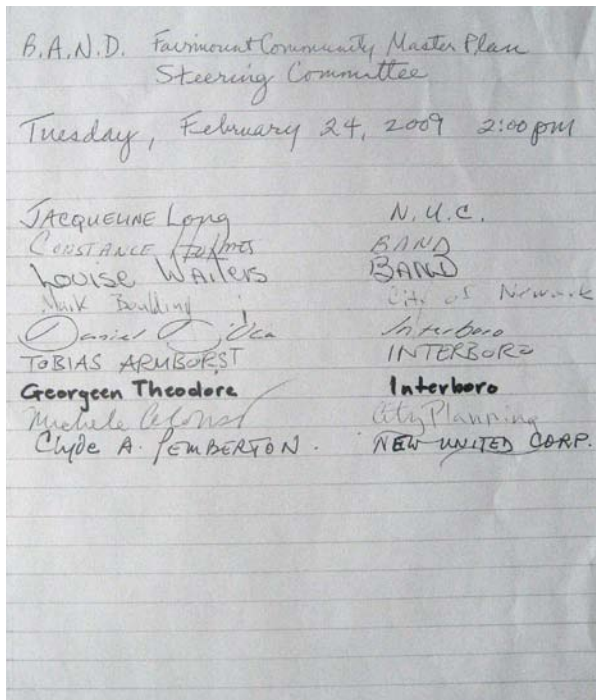 B.A.N.D. Fairmount Community Master Plan
Steering Committee
Tuesday, February 24, 2009 2:00 pm
JACQUELINE Long N.U.C.
CONSTANCE BAND
Louise WAITERS BAND
Mark City of Newark
Daniel Interboro
TOBIAS ARMBORST INTERBORO
Georgeen Theodore Interboro
Michele City Planning
Clyde A. PEMBERTON. NEW UNITED CORP.